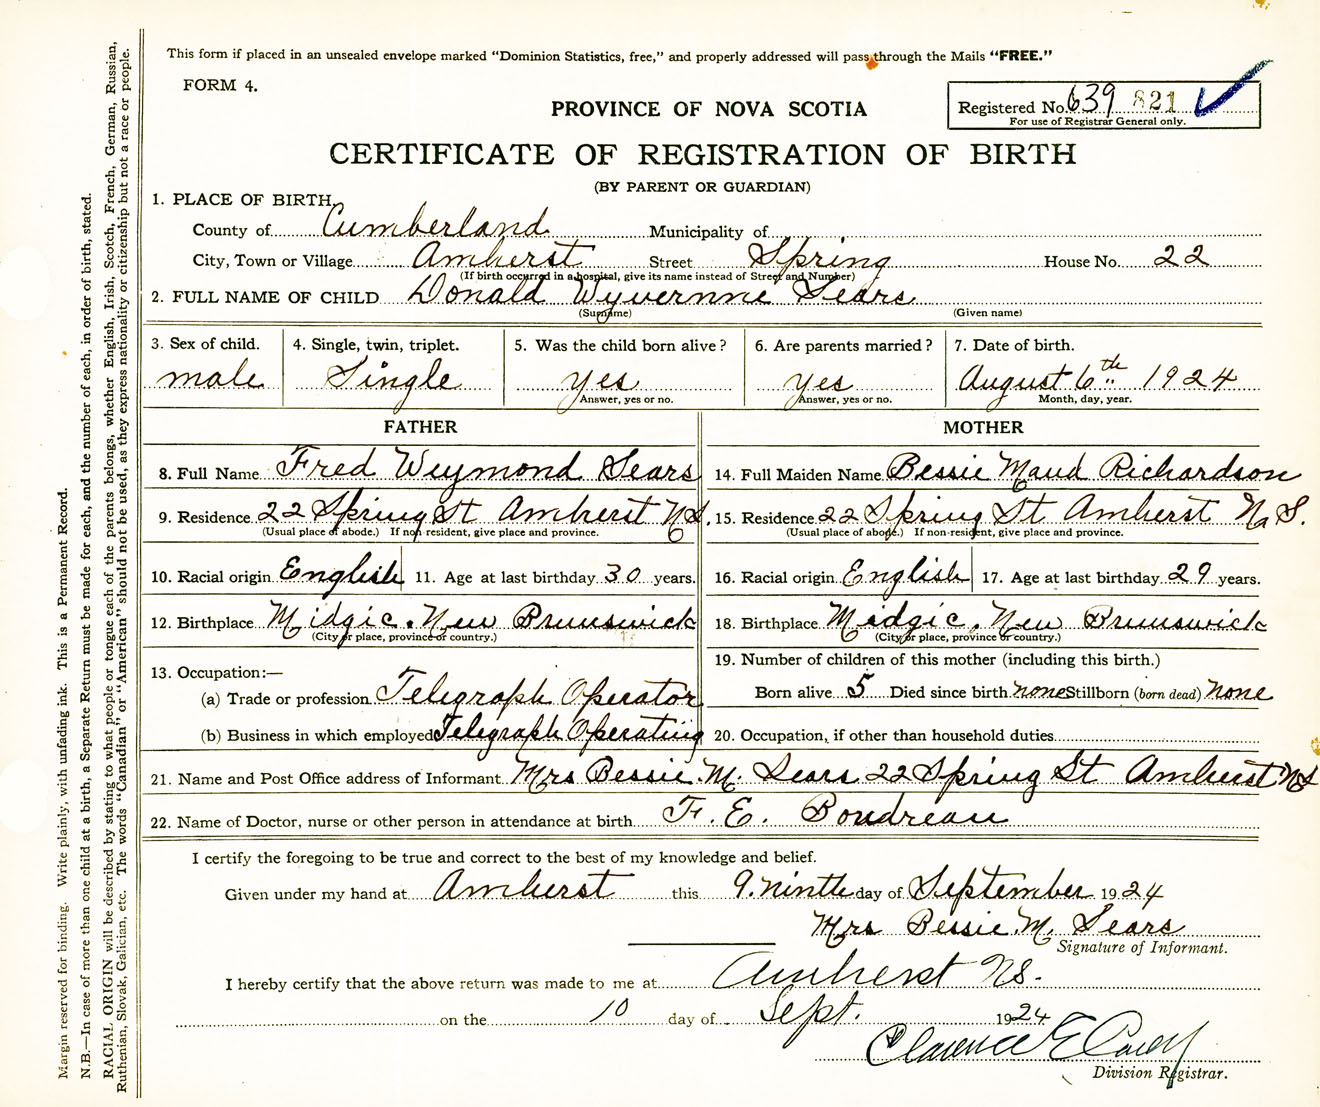 This form if placed in an unsealed envelope marked "Dominion Statistics, free," and properly addressed will pass through the Mails "FREE."
FORM 4.
PROVINCE OF NOVA SCOTIA
Registered No. 639 821
For use of Registrar General only.
CERTIFICATE OF REGISTRATION OF BIRTH
(BY PARENT OR GUARDIAN)
1. PLACE OF BIRTH
County of Cumberland Municipality of
City, Town or Village Amherst Street Spring House No. 22
(If birth occurred in a hospital, give its name instead of Street and Number)
2. FULL NAME OF CHILD Donald Wyvernne Sears
(Surname) (Given name)
3. Sex of child. 4. Single, twin, triplet. 5. Was the child born alive? 6. Are parents married? 7. Date of birth.
male Single yes yes August 6th 1924
Answer, yes or no. Answer, yes or no. Month, day, year.
FATHER MOTHER
8. Full Name Fred Weymond Sears 14. Full Maiden Name Bessie Maud Richardson
9. Residence 22 Spring St Amherst N.S. 15. Residence 22 Spring St Amherst N.S.
(Usual place of abode.) If non-resident, give place and province. (Usual place of abode.) If non-resident, give place and province.
10. Racial origin English 11. Age at last birthday 30 years. 16. Racial origin English 17. Age at last birthday 29 years.
12. Birthplace Midgic. New Brunswick 18. Birthplace Midgic. New Brunswick
(City or place, province or country.) (City or place, province or country.)
13. Occupation:— 19. Number of children of this mother (including this birth.)
(a) Trade or profession Telegraph Operator Born alive 5 Died since birth none Stillborn (born dead) none
(b) Business in which employed Telegraph Operating 20. Occupation, if other than household duties
21. Name and Post Office address of Informant Mrs Bessie. M. Sears 22 Spring St Amherst NS
22. Name of Doctor, nurse or other person in attendance at birth F. E. Boudreau
I certify the foregoing to be true and correct to the best of my knowledge and belief.
Given under my hand at Amherst this 9. ninth day of September 1924
Mrs Bessie. M. Sears
Signature of Informant.
I hereby certify that the above return was made to me at Amherst NS.
on the 10 day of Sept. 1924
Clarence E
Division Registrar.
Margin reserved for binding. Write plainly, with unfading ink. This is a Permanent Record.
N.B.—In case of more than one child at a birth, a Separate Return must be made for each, and the number of each, in order of birth, stated.
RACIAL ORIGIN will be described by stating to what people or tongue each of the parents belongs, whether English, Irish, Scotch, French, German, Russian,
Ruthenian, Slovak, Galician, etc. The words "Canadian" or "American" should not be used, as they express nationality or citizenship but not a race or people.